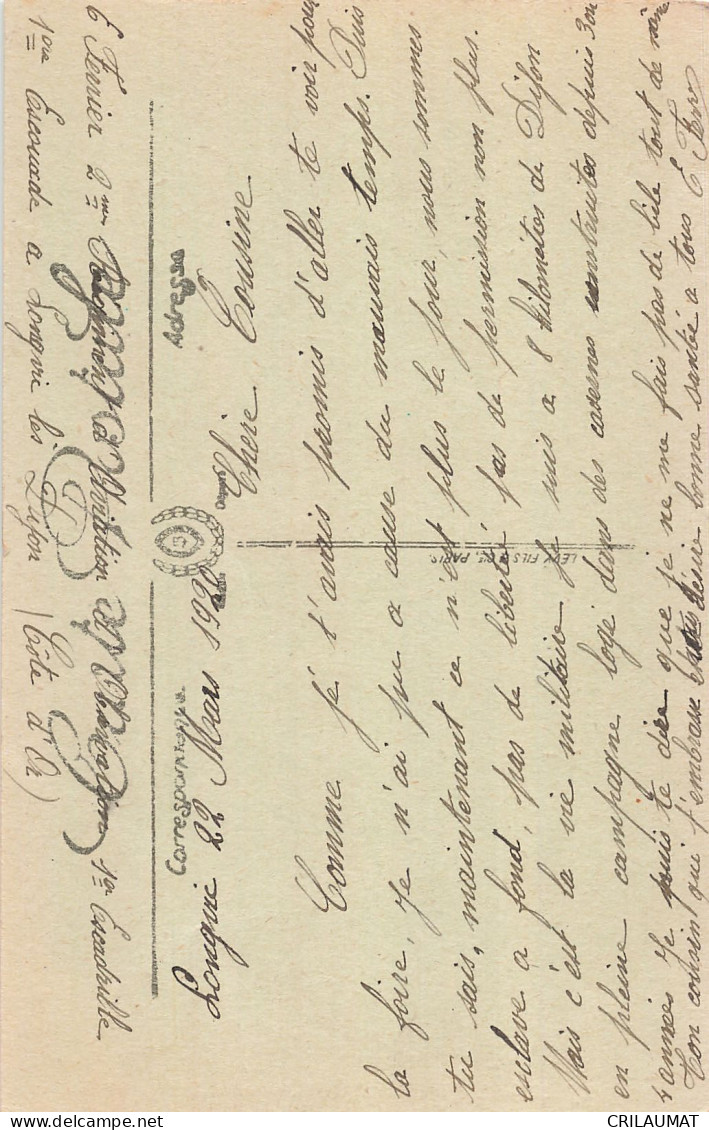 E Ferrier 2me Régiment d'Aviation 1re Escadrille
1ere Escouade a Longvic les Dijon (Côte d'Or)
Correspondance Adresse
Longvic 22 Mars 192
Chère Cousine
Comme je t'avais promis d'aller te voir pour
la foire, je n'ai pu a cause du mauvais temps. Puis
tu sais, maintenant ce n'est plus le jour, nous sommes
esclave a fond, pas de liberté, pas de permission non plus.
Mais c'est la vie militaire je suis a 8 kilomètres de Dijon
en pleine campagne logé dans des casernes construites depuis 3 ou
4 années Je puis te dire que je ne me fais pas de bile tout de même
Ton cousin qui t'embrasse bonne santé a tous E Ferr
LEVY FILS & Cie, PARIS
CRILAUMAT